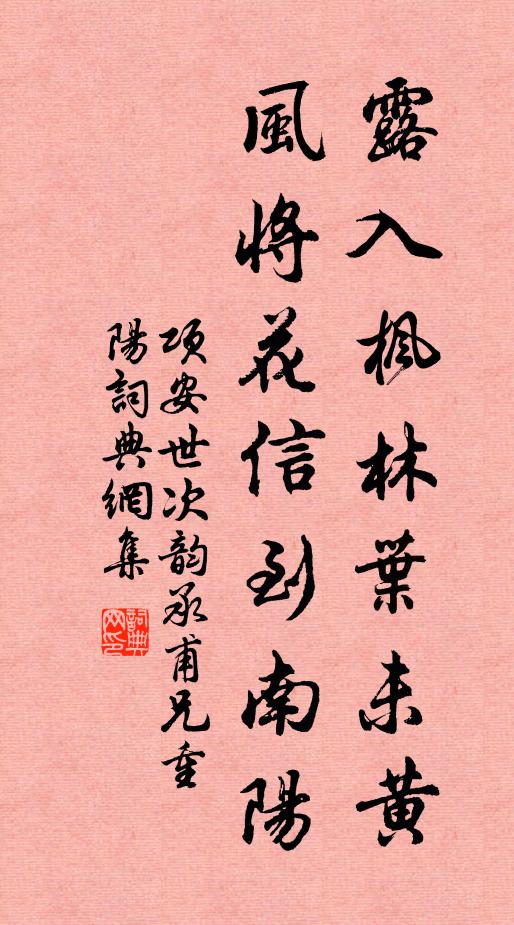 露入楓林葉未黄
風將花信到南陽
項安世次韵承甫兄重
陽詞典網集
詞典
网印